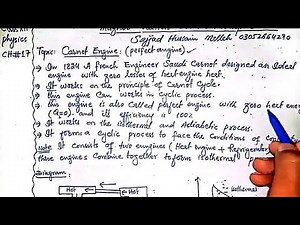 physics
CH#17
Sajjad Hussain Melleh 03052664270
Topic: Carnot Engine: (perfect engine).
→ In 1824 A french Engineer Saudi Carnot designed an Ideal
engine with zero losses of heat engine heat.
→ It works on the principle of Carnot Cycle.
→ this engine Can works in cyclic process.
→ this engine is also Called perfect engine with zero heat
(Q=0) and its efficiency is 100%
→ It works on the Isothermal and Adiabatic process.
→ It forms a cyclic process to face the conditions of
Note It consists of two engines (Heat engine + Refrigerator)
these engines Combine together to form isothermal
Diagram:
Hot
Hot
isothermal